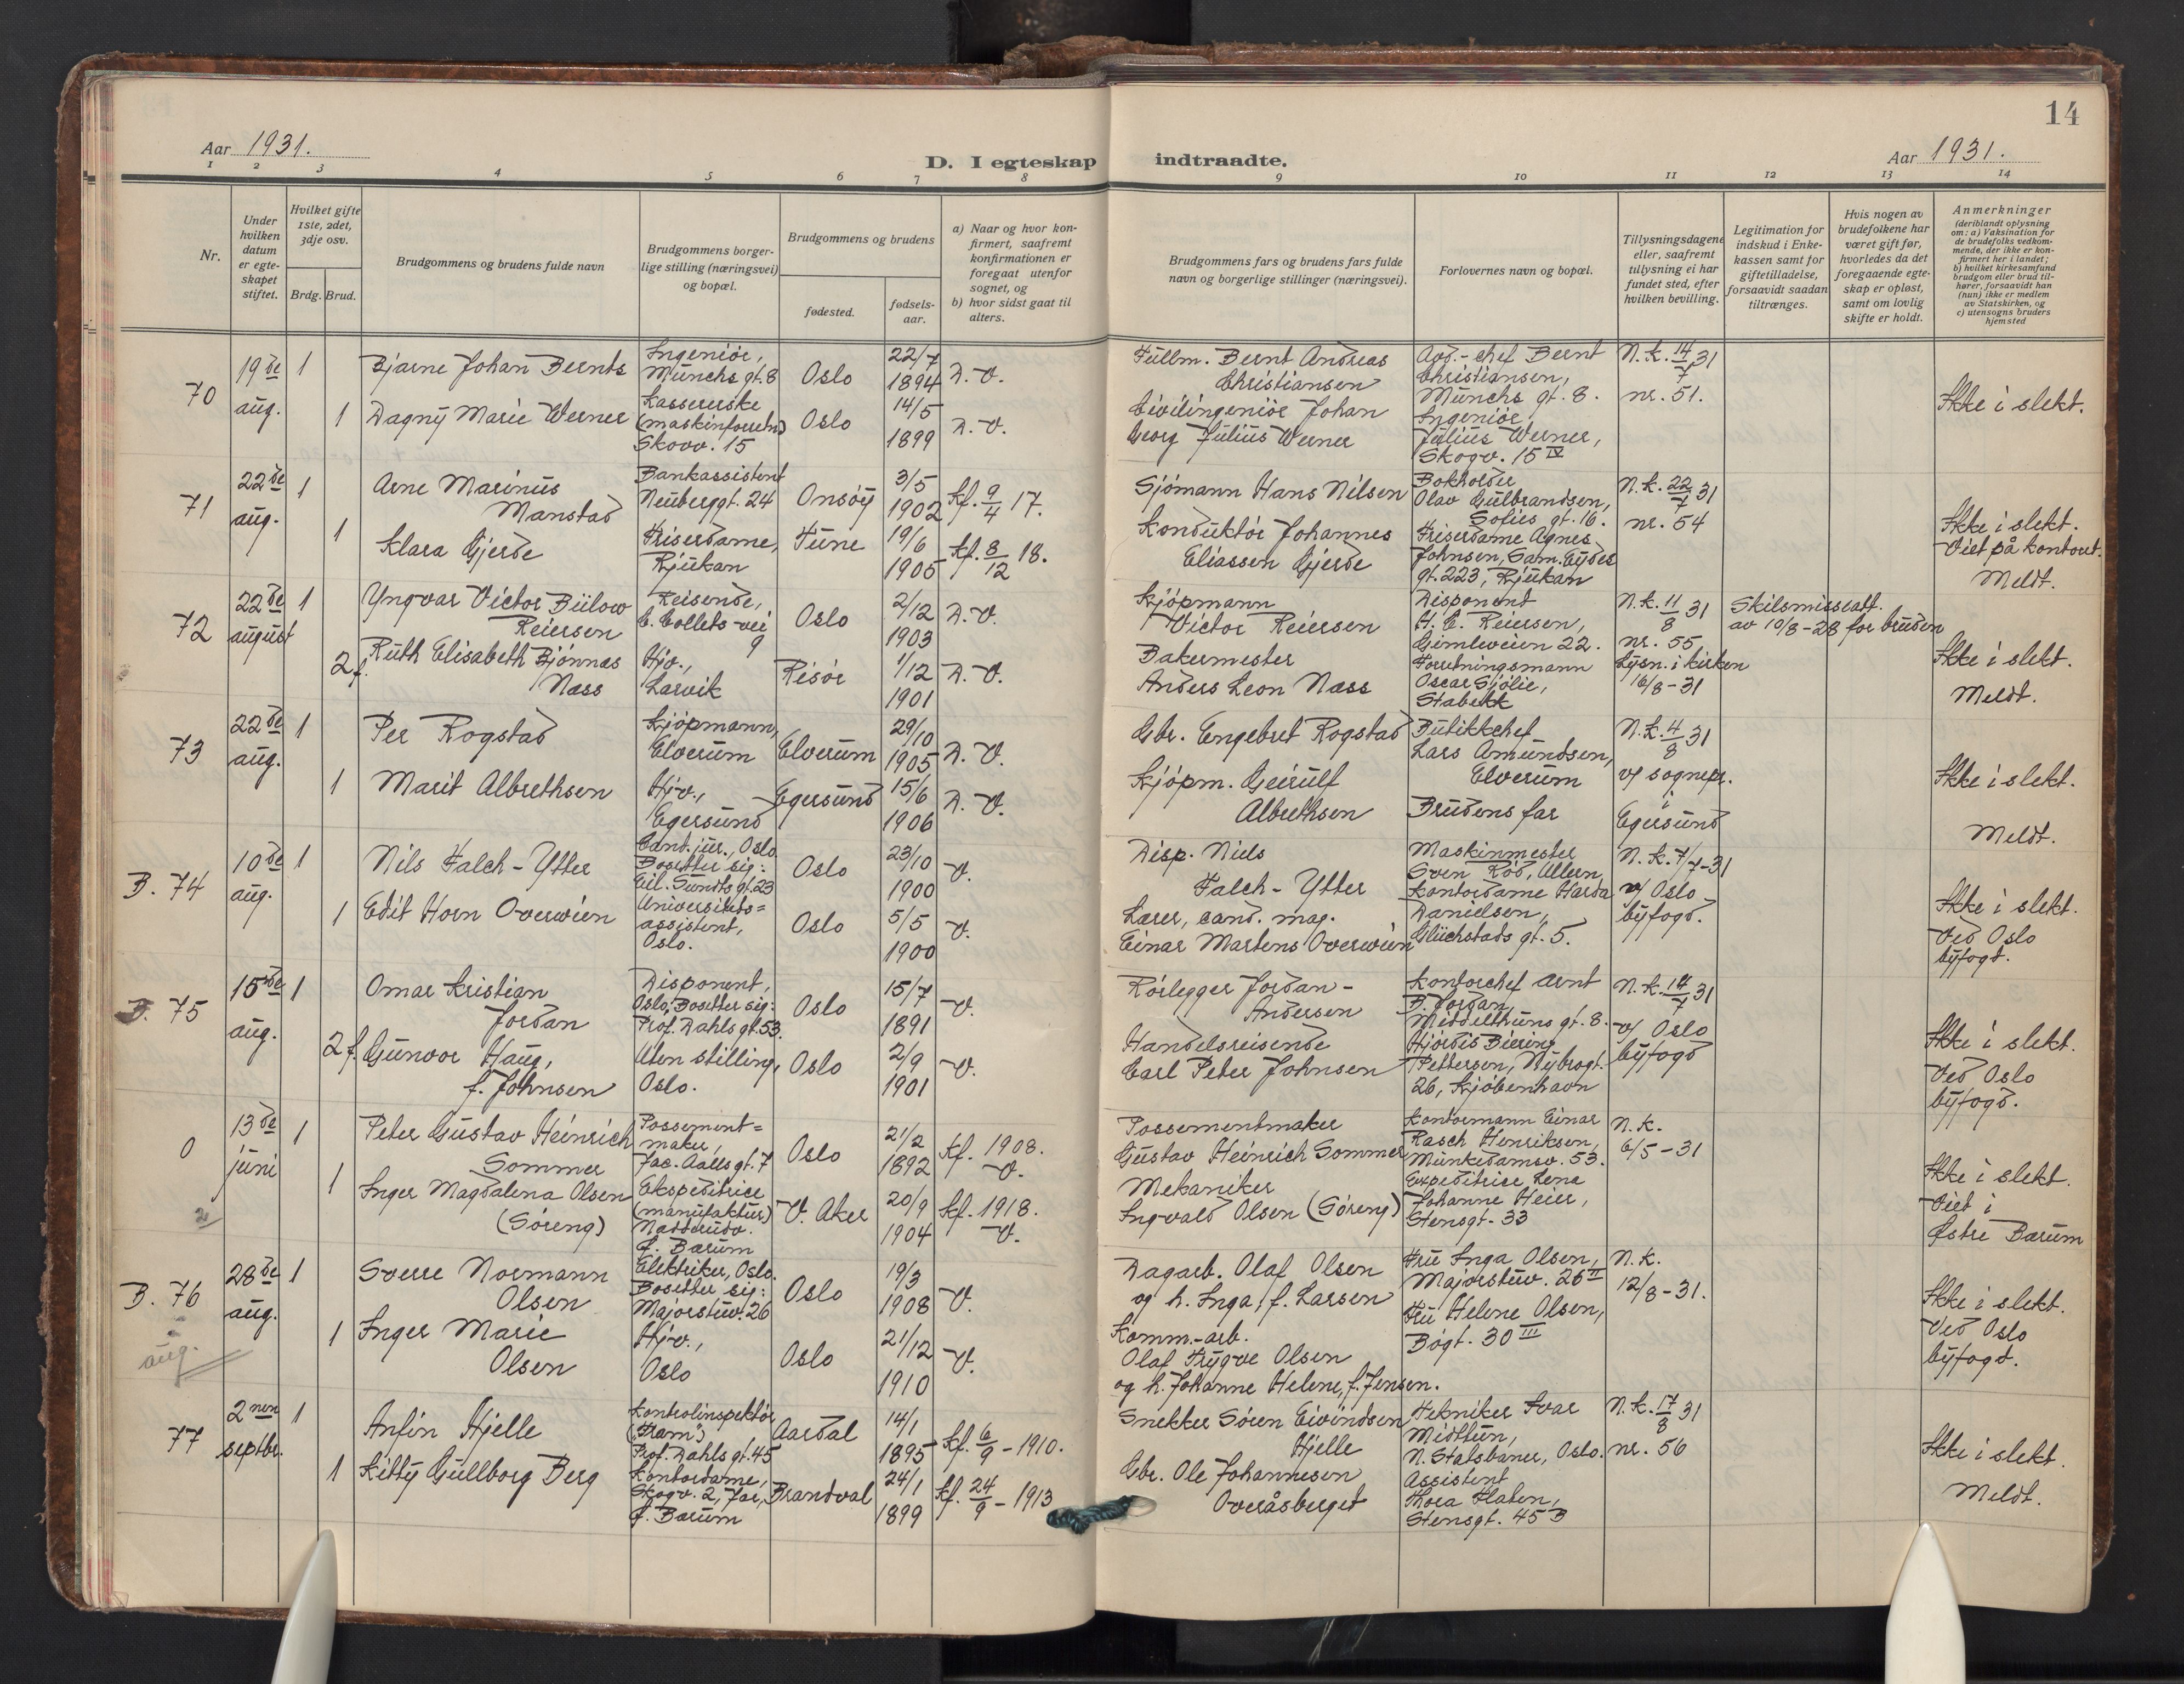 14
Aar 1931.
D. I egteskap indtraadte.
Aar 1931.
1 2 3 4 5 6 7 8 9 10 11 12 13 14
Nr.
Under
hvilken
datum
er egte-
skapet
stiftet.
Hvilket gifte
1ste, 2det,
3dje osv.
Brdg. Brud.
Brudgommens og brudens fulde navn
Brudgommens borger-
lige stilling (næringsvei)
og bopæl.
Brudgommens og brudens
fødested.
fødsels-
aar.
a) Naar og hvor kon-
firmert, saafremt
konfirmationen er
foregaat utenfor
sognet, og
b) hvor sidst gaat til
alters.
Brudgommens fars og brudens fars fulde
navn og borgerlige stillinger (næringsvei).
Forlovernes navn og bopæl.
Tillysningsdagene
eller, saafremt
tillysning ei har
fundet sted, efter
hvilken bevilling.
Legitimation for
indskud i Enke-
kassen samt for
giftetilladelse,
forsaavidt saadan
tiltrænges.
Hvis nogen av
brudefolkene har
været gift før,
hvorledes da det
foregaaende egte-
skap er opløst,
samt om lovlig
skifte er holdt.
Anmerkninger
(deriblandt oplysning
om: a) Vaksination for
de brudefolks vedkom-
mende, der ikke er kon-
firmert her i landet;
b) hvilket kirkesamfund
brudgom eller brud til-
hører, forsaavidt han
(hun) ikke er medlem
av Statskirken, og
c) utensogns bruders
hjemsted
70
19de
aug.
1
1
Bjarne Johan Bernts
Dagny Marie Werner
Ingeniør,
Munchs gt. 8
Kassererske
(maskinforretn)
Skovv. 15
Oslo
Oslo
22/7
1894
14/5
1899
D. V.
D. V.
Fullm. Bernt Andreas
Christiansen
Civilingeniør Johan
Georg Julius Werner
Avd.-chef Bernt
Christiansen,
Munchs gt. 8.
Ingeniør
Julius Werner,
Skogv. 15 IV
N.k. 14/7 31
nr. 51.
Ikke i slekt.
71
22de
aug.
1
1
Arne Marinus
Manstad
Klara Gjerde
Bankassistent
Neuberggt. 24
Friserdame,
Rjukan
Onsøy
Fune
3/5
1902
19/6
1905
Kf. 9/4 17.
Kf. 8/12 18.
Sjømann Hans Nilsen
Konduktør Johannes
Eliassen Gjerde
Bokholder
Olav Gulbrandsen,
Sofies gt. 16.
Friserdame Agnes
Johnsen, Sam. Eydes
gt. 223, Rjukan
N.k. 22/7 31
nr. 54
Ikke i slekt.
Viet på kontoret.
Meldt.
72
22de
august
1
2 f.
Yngvar Victor Bülow
Reiersen
Ruth Elisabeth Bjønnæs
Næss
Reisende,
C. Collets-vei
9
Hjv.,
Larvik
Oslo
Risør
2/12
1903
1/12
1901
D. V.
D. V.
Kjøpmann
Victor Reiersen
Bakermester
Anders Leon Næss
Disponent
H. C. Reiersen,
Gimleveien 22.
Forretningsmann
Oscar Sjølie,
Stabekk
N.k. 11/8 31
nr. 55
Lysn. i kirken
16/8-31
Skilsmisseatt.
av 10/8-28 for bruden
Ikke i slekt.
Meldt.
73
22de
aug.
1
1
Per Rogstad
Marit Albrethsen
Kjøpmann,
Elverum
Hjv.,
Egersund
Elverum
Egersund
29/10
1905
15/6
1906
D. V.
D. V.
Gbr. Engebret Rogstad
Kjøpm. Geirulf
Albrethsen
Butikkchef
Lars Amundsen,
Elverum
Brudens far
N.k. 4/8 31
v/ sognepr.
i
Egersund
Ikke i slekt.
Meldt.
B. 74
10de
aug.
1
1
Nils Falch-Ytter
Edit Horn Overwien
Cand. jur., Oslo
Bosetter sig:
Eil. Sundts gt. 23
Universitets=
assistent,
Oslo.
Oslo
Oslo
23/10
1900
5/5
1900
V.
V.
Disp. Niels
Falch-Ytter
Lærer, cand. mag.
Einar Martens Overwien
Maskinmester
Sven Rød, Ullern
Kontordame Harda
Danielsen,
Glückstads gt. 5.
N.k. 7/7-31
v/ Oslo
byfogd.
Ikke i slekt.
Ved Oslo
byfogd.
B. 75
15de
aug.
1
2 f.
Omar Kristian
Jordan
Gunvor Haug,
f. Johnsen
Disponent,
Oslo, Bosetter sig:
Prof. Dahls gt. 53.
Uten stilling,
Oslo.
Oslo
Oslo
15/7
1891
2/9
1901
V.
V.
Rørlegger Jordan-
Andersen
Handelsreisende
Carl Peter Johnsen
Kontorchef Arnt
B. Jordan,
Middelthuns gt. 8.
Hjørdis Biering
Pettersen, Nybrogt.
26, Kjøbenhavn
N.k. 14/7 31
v/ Oslo
byfogd
Ikke i slekt.
Ved Oslo
byfogd.
0
13de
juni
1
1
Peter Gustav Heinrich
Sommer
Inger Magdalena Olsen
(Søreng)
Possement=
maker,
Jac. Aalls gt. 7
Ekspeditrice
(manufaktur)
Nadderudv.
Ø. Bærum
Oslo
V. Aker
21/2
1892
20/9
1904
Kf. 1908.
V.
Kf. 1918.
V.
Possementmaker
Gustav Heinrich Sommer
Mekaniker
Ingvald Olsen (Søreng)
Kontormann Einar
Rasch Henriksen,
Munkedamsv. 53.
Expeditrice Lena
Johanne Heier,
Stensgt. 33
N.k.
6/5-31
Ikke i slekt.
Viet i
Østre Bærum
B. 76
aug.
28de
aug.
1
1
Sverre Normann
Olsen
Inger Marie
Olsen
Elektriker, Oslo.
Bosetter sig:
Majorstuv. 26
Hjv.,
Oslo
Oslo
Oslo
19/3
1908
21/12
1910
V.
V.
Dagarb. Olaf Olsen
og h. Inga, f. Larsen
Komm.-arb.
Olaf Trygve Olsen
og h. Johanne Helene, f. Jensen.
Fru Inga Olsen,
Majorstuv. 26 II
Fru Helene Olsen,
Bøgt. 30 III
N.k.
12/8-31.
Ikke i slekt.
Ved Oslo
byfogd.
77
2nen
septbr.
1
1
Anfin Hjelle
Kitty Gullborg Berg
Kontrolinspektør
("Fram")
Prof. Dahls gt. 45
Kontordame,
Skogv. 2, Jar,
Ø. Bærum
Aardal
Brandval
14/1
1895
24/1
1899
Kf. 6/9-1910.
Kf. 24/9-1913
Snekker Søren Eivindsen
Hjelle
Gbr. Ole Johannesen
Overåsberget
Tekniker Ivar
Midttun,
N. Statsbaner, Oslo.
Assistent
Thora Flaten,
Stensgt. 45 B
N.k. 17/8 31
nr. 56
Ikke i slekt.
Meldt.